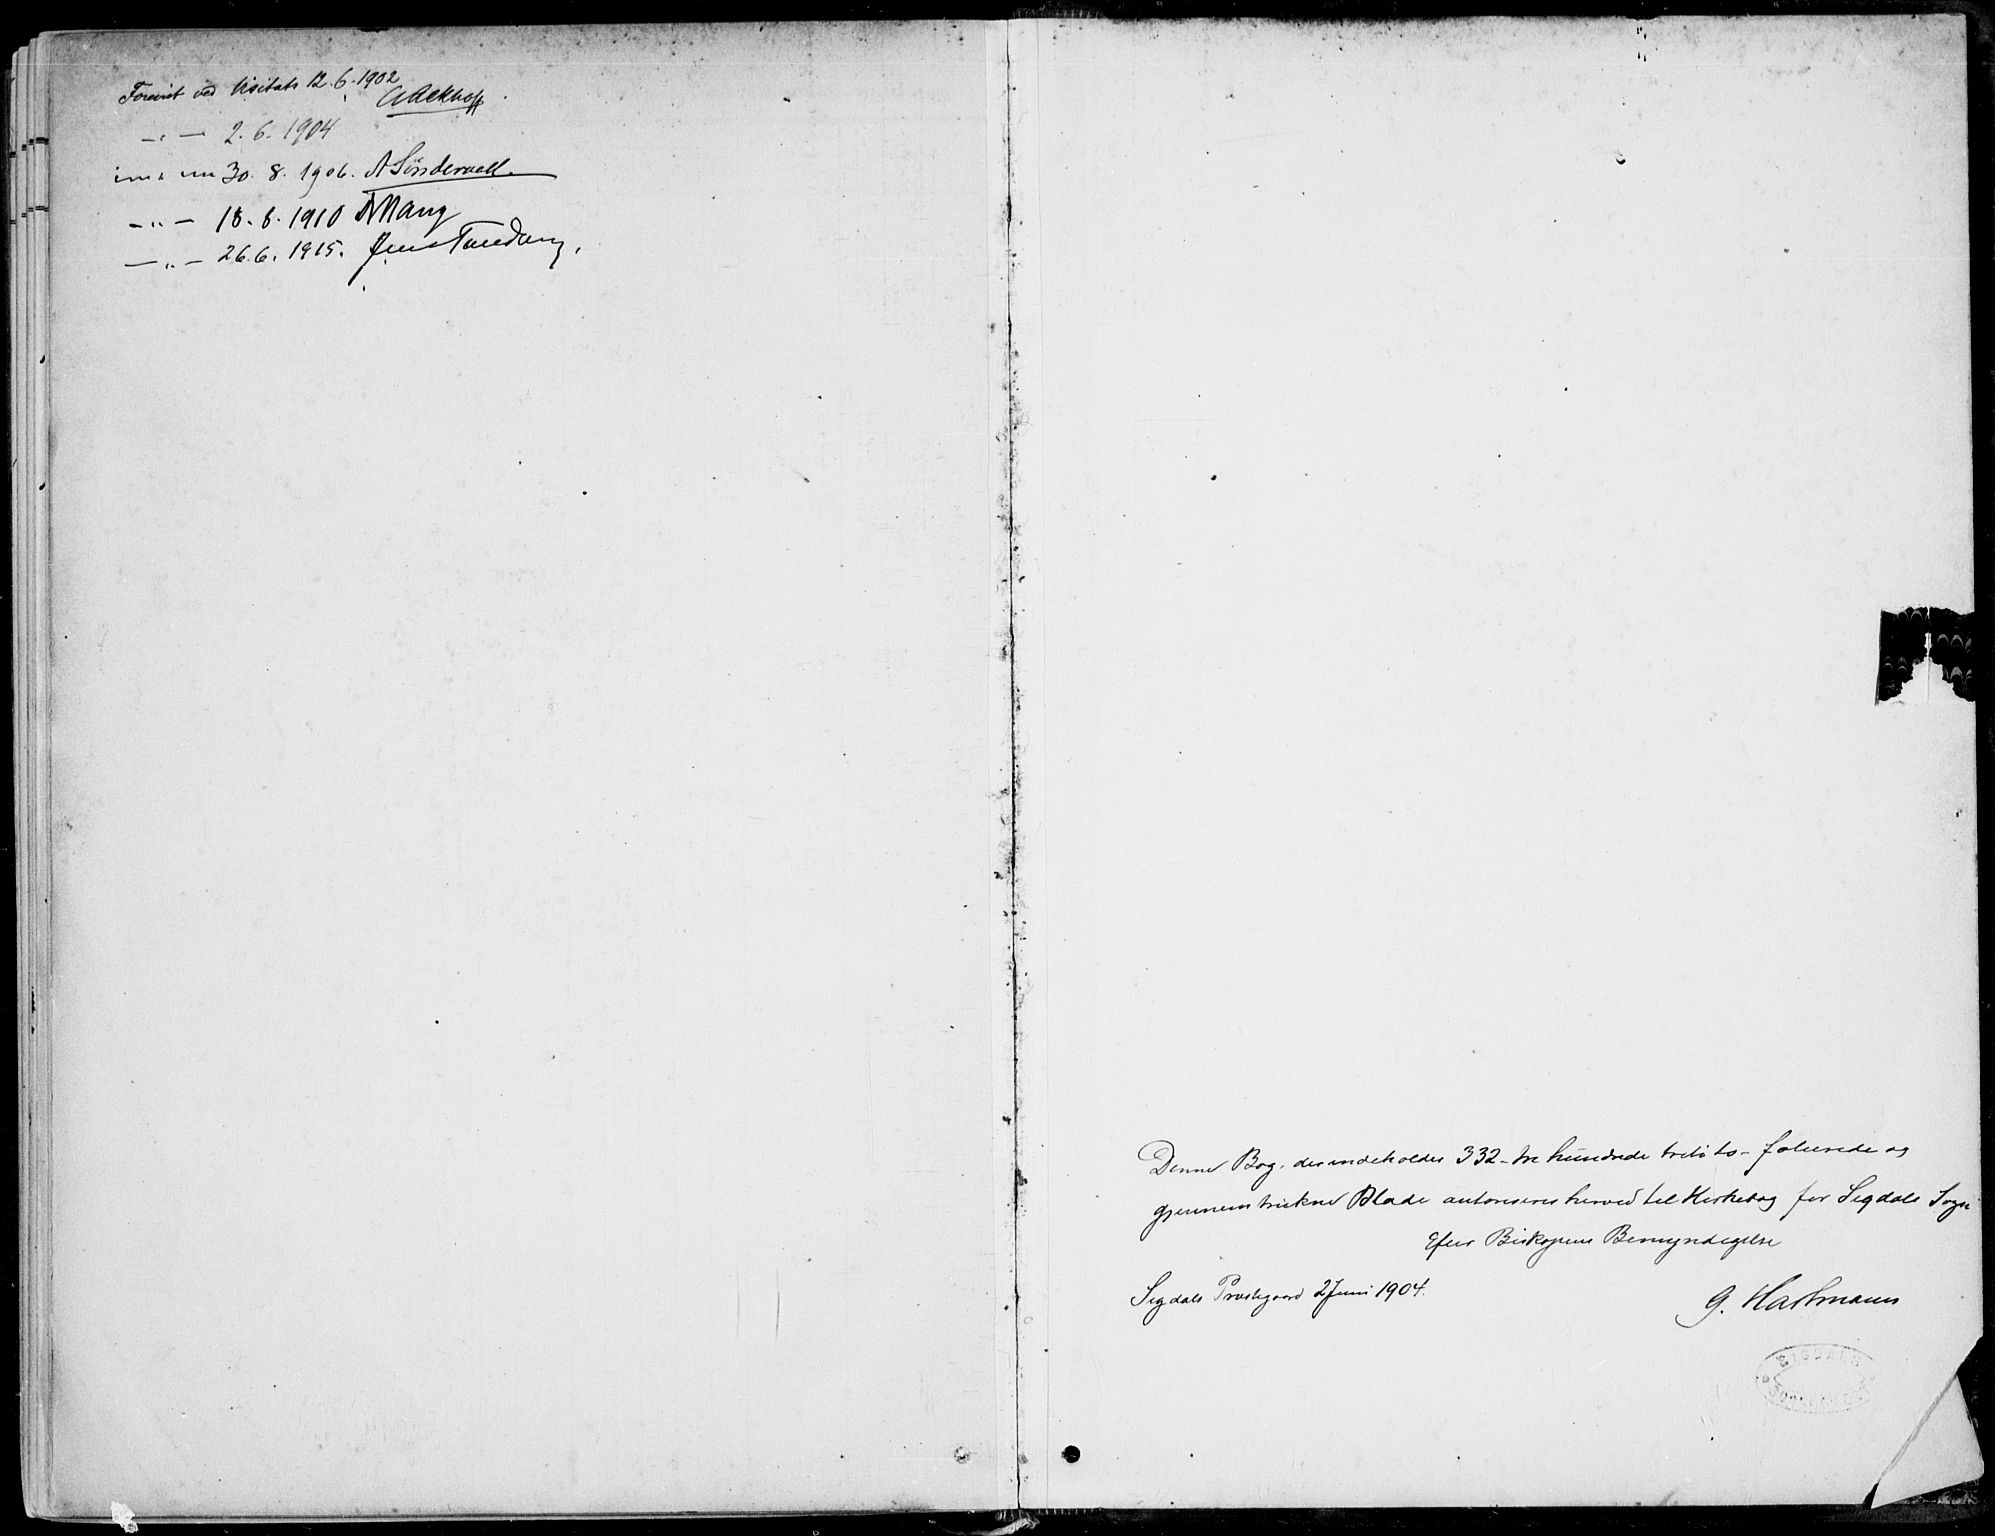 Forevist ved Visitats 12.6.1902
CABekhoff
-„- 2.6.1904
-„- 30.8.1906. A Söndervell.
-„- 18.8.1910
-„- 26.6.1915. Jens Tandberg.
Denne Bog, der indeholder 332 - tre hundrede treti to - folierede og
gjennemtrukne Blade autoriseres herved til Kirkebog for Sigdals Sogn
Efter Biskopens Bemyndigelse
Sigdals Præstegaard 2 Juni 1904.
G. Hartmann
SIGDALS